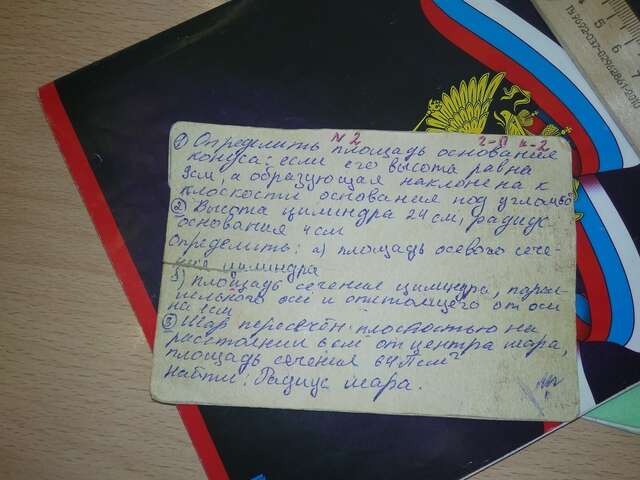 N 2 г-II к-2
① Определить площадь основания
конуса: если его высота равна
3см, а образующая наклонена к
плоскости основания под углом 60
② Высота цилиндра 24 см, радиус
основания 4 см
Определить: а) площадь осевого сече-
ния цилиндра
б) площадь сечения цилиндра, парал-
лельного оси и отстоящего от оси
на 1см
③ Шар пересечён плоскостью на
расстоянии 6 см от центра шара,
площадь сечения 64П см²
Найти: Радиус шара.